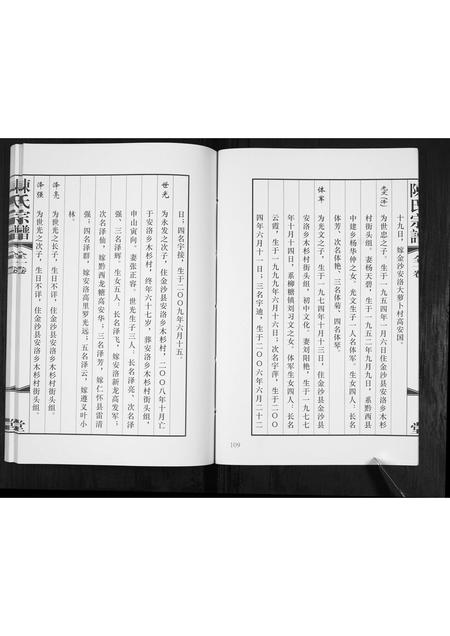 陈氏宗谱
全一卷
堂
十九日，嫁金沙安洛大萝卜村高安国。
为世忠之子，生于一九五四年一月六日住金沙县安洛乡木杉
村街头组。妻杨大碧，生于一九五二年九月九日，系黔西县
中建乡杨华仲之女，光文生子一人名体军。生女四人：长名
体芳、次名体艳、三名体菊、四名体琴。
体军
为光文之子，生于一九七四年十月十三日，住金沙县金沙县
安洛乡木杉村街头组，初中文化。妻刘阳艳，生于一九七七
年十月十四日，系柳塘镇刘习文之女，体军生女四人：长名
云霞，生于一九九九年六月十六日；次名宇萍，生于二〇〇
四年六月十一日；三名宇迪，生于二〇〇六年六月二十二
109
日；四名宇接，生于二〇〇九年六月十五。
世光
为永发之次子，住金沙县安洛乡木杉村，二〇〇八年十月亡
于安洛乡木杉村，终年六十七岁，葬安洛乡木杉村街头组，
申山寅向。妻张正容。世光生子三人：长名泽亮、次名泽
强、三名泽辉。生女五人：长名泽飞，嫁安洛新龙高发军；
次名泽仙，嫁黔西龙糖高安华；三名泽芳，嫁仁怀县雷清
强；四名泽群，嫁安洛高里罗光远；五名泽云，嫁遵义叶小
林。
泽亮
为世光之长子，生日不详，住金沙县安洛乡木杉村街头组。
泽强
为世光之次子，生日不详，住金沙县安洛乡木杉村街头组。
陈氏宗谱
全一卷
堂